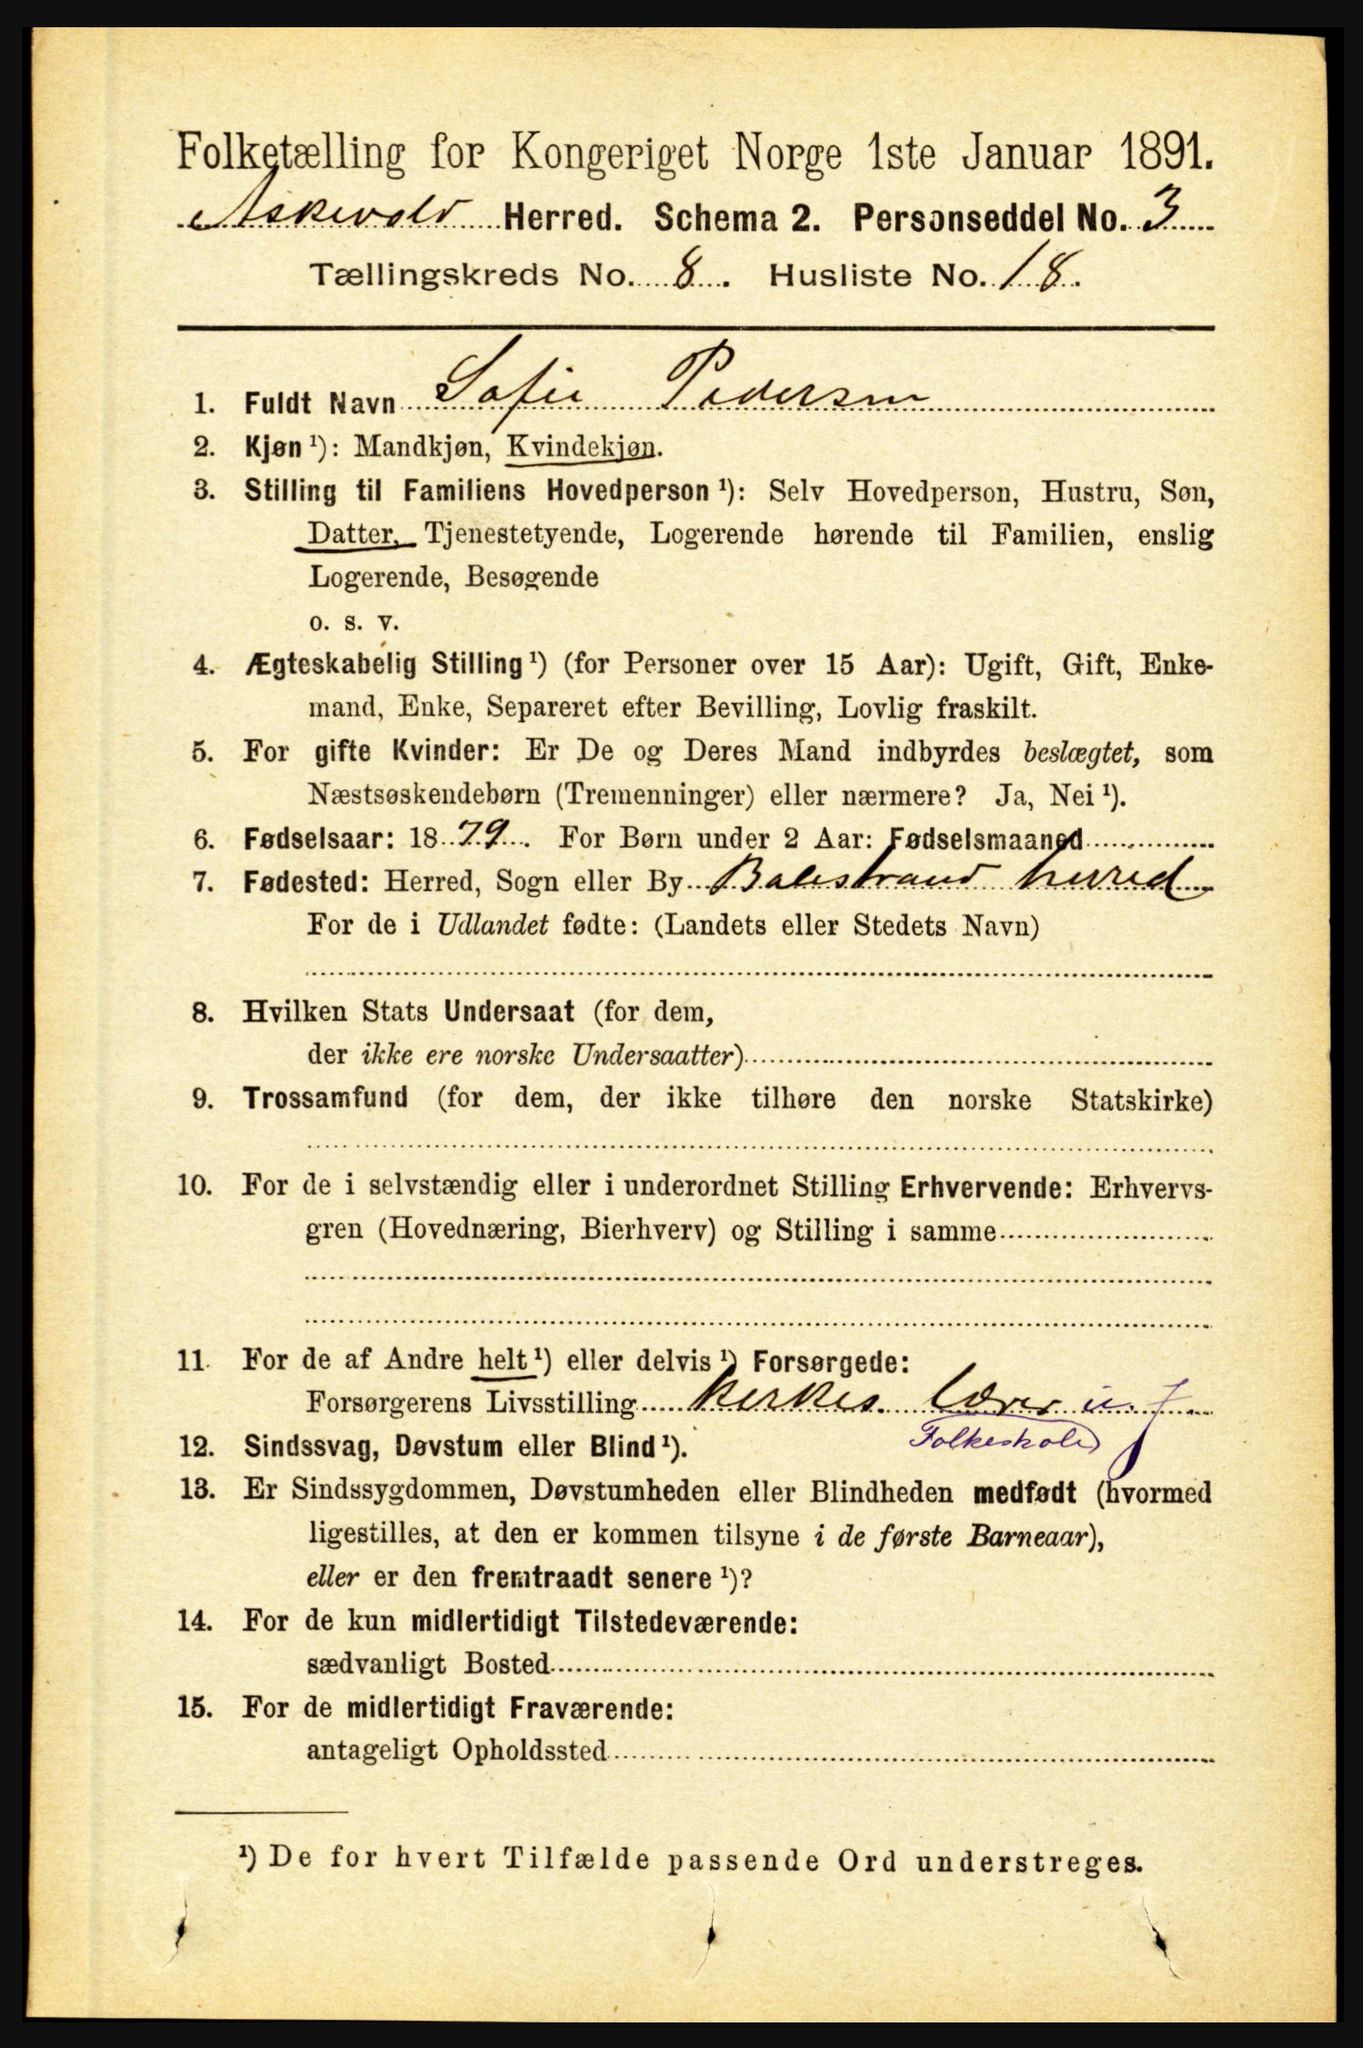 Folketælling for Kongeriget Norge 1ste Januar 1891.
Askevold Herred. Schema 2. Personseddel No. 3
Tællingskreds No. 8. Husliste No. 18.
1. Fuldt Navn Sofie Pedersen
2. Kjøn ¹): Mandkjøn, Kvindekjøn.
3. Stilling til Familiens Hovedperson ¹): Selv Hovedperson, Hustru, Søn,
Datter, Tjenestetyende, Logerende hørende til Familien, enslig
Logerende, Besøgende
o. s. v.
4. Ægteskabelig Stilling ¹) (for Personer over 15 Aar): Ugift, Gift, Enke-
mand, Enke, Separeret efter Bevilling, Lovlig fraskilt.
5. For gifte Kvinder: Er De og Deres Mand indbyrdes beslægtet, som
Næstsøskendebørn (Tremenninger) eller nærmere? Ja, Nei ¹).
6. Fødselsaar: 1879. For Børn under 2 Aar: Fødselsmaaned
7. Fødested: Herred, Sogn eller By Balestrand herred
For de i Udlandet fødte: (Landets eller Stedets Navn)
8. Hvilken Stats Undersaat (for dem,
der ikke ere norske Undersaatter)
9. Trossamfund (for dem, der ikke tilhøre den norske Statskirke)
10. For de i selvstændig eller i underordnet Stilling Erhvervende: Erhvervs-
gren (Hovednæring, Bierhverv) og Stilling i samme
11. For de af Andre helt ¹) eller delvis ¹) Forsørgede:
Forsørgerens Livsstilling Kirkes. Lærer i
Folkeskole
12. Sindssvag, Døvstum eller Blind ¹).
13. Er Sindssygdommen, Døvstumheden eller Blindheden medfødt (hvormed
ligestilles, at den er kommen tilsyne i de første Barneaar),
eller er den fremtraadt senere ¹)?
14. For de kun midlertidigt Tilstedeværende:
sædvanligt Bosted
15. For de midlertidigt Fraværende:
antageligt Opholdssted
¹) De for hvert Tilfælde passende Ord understreges.